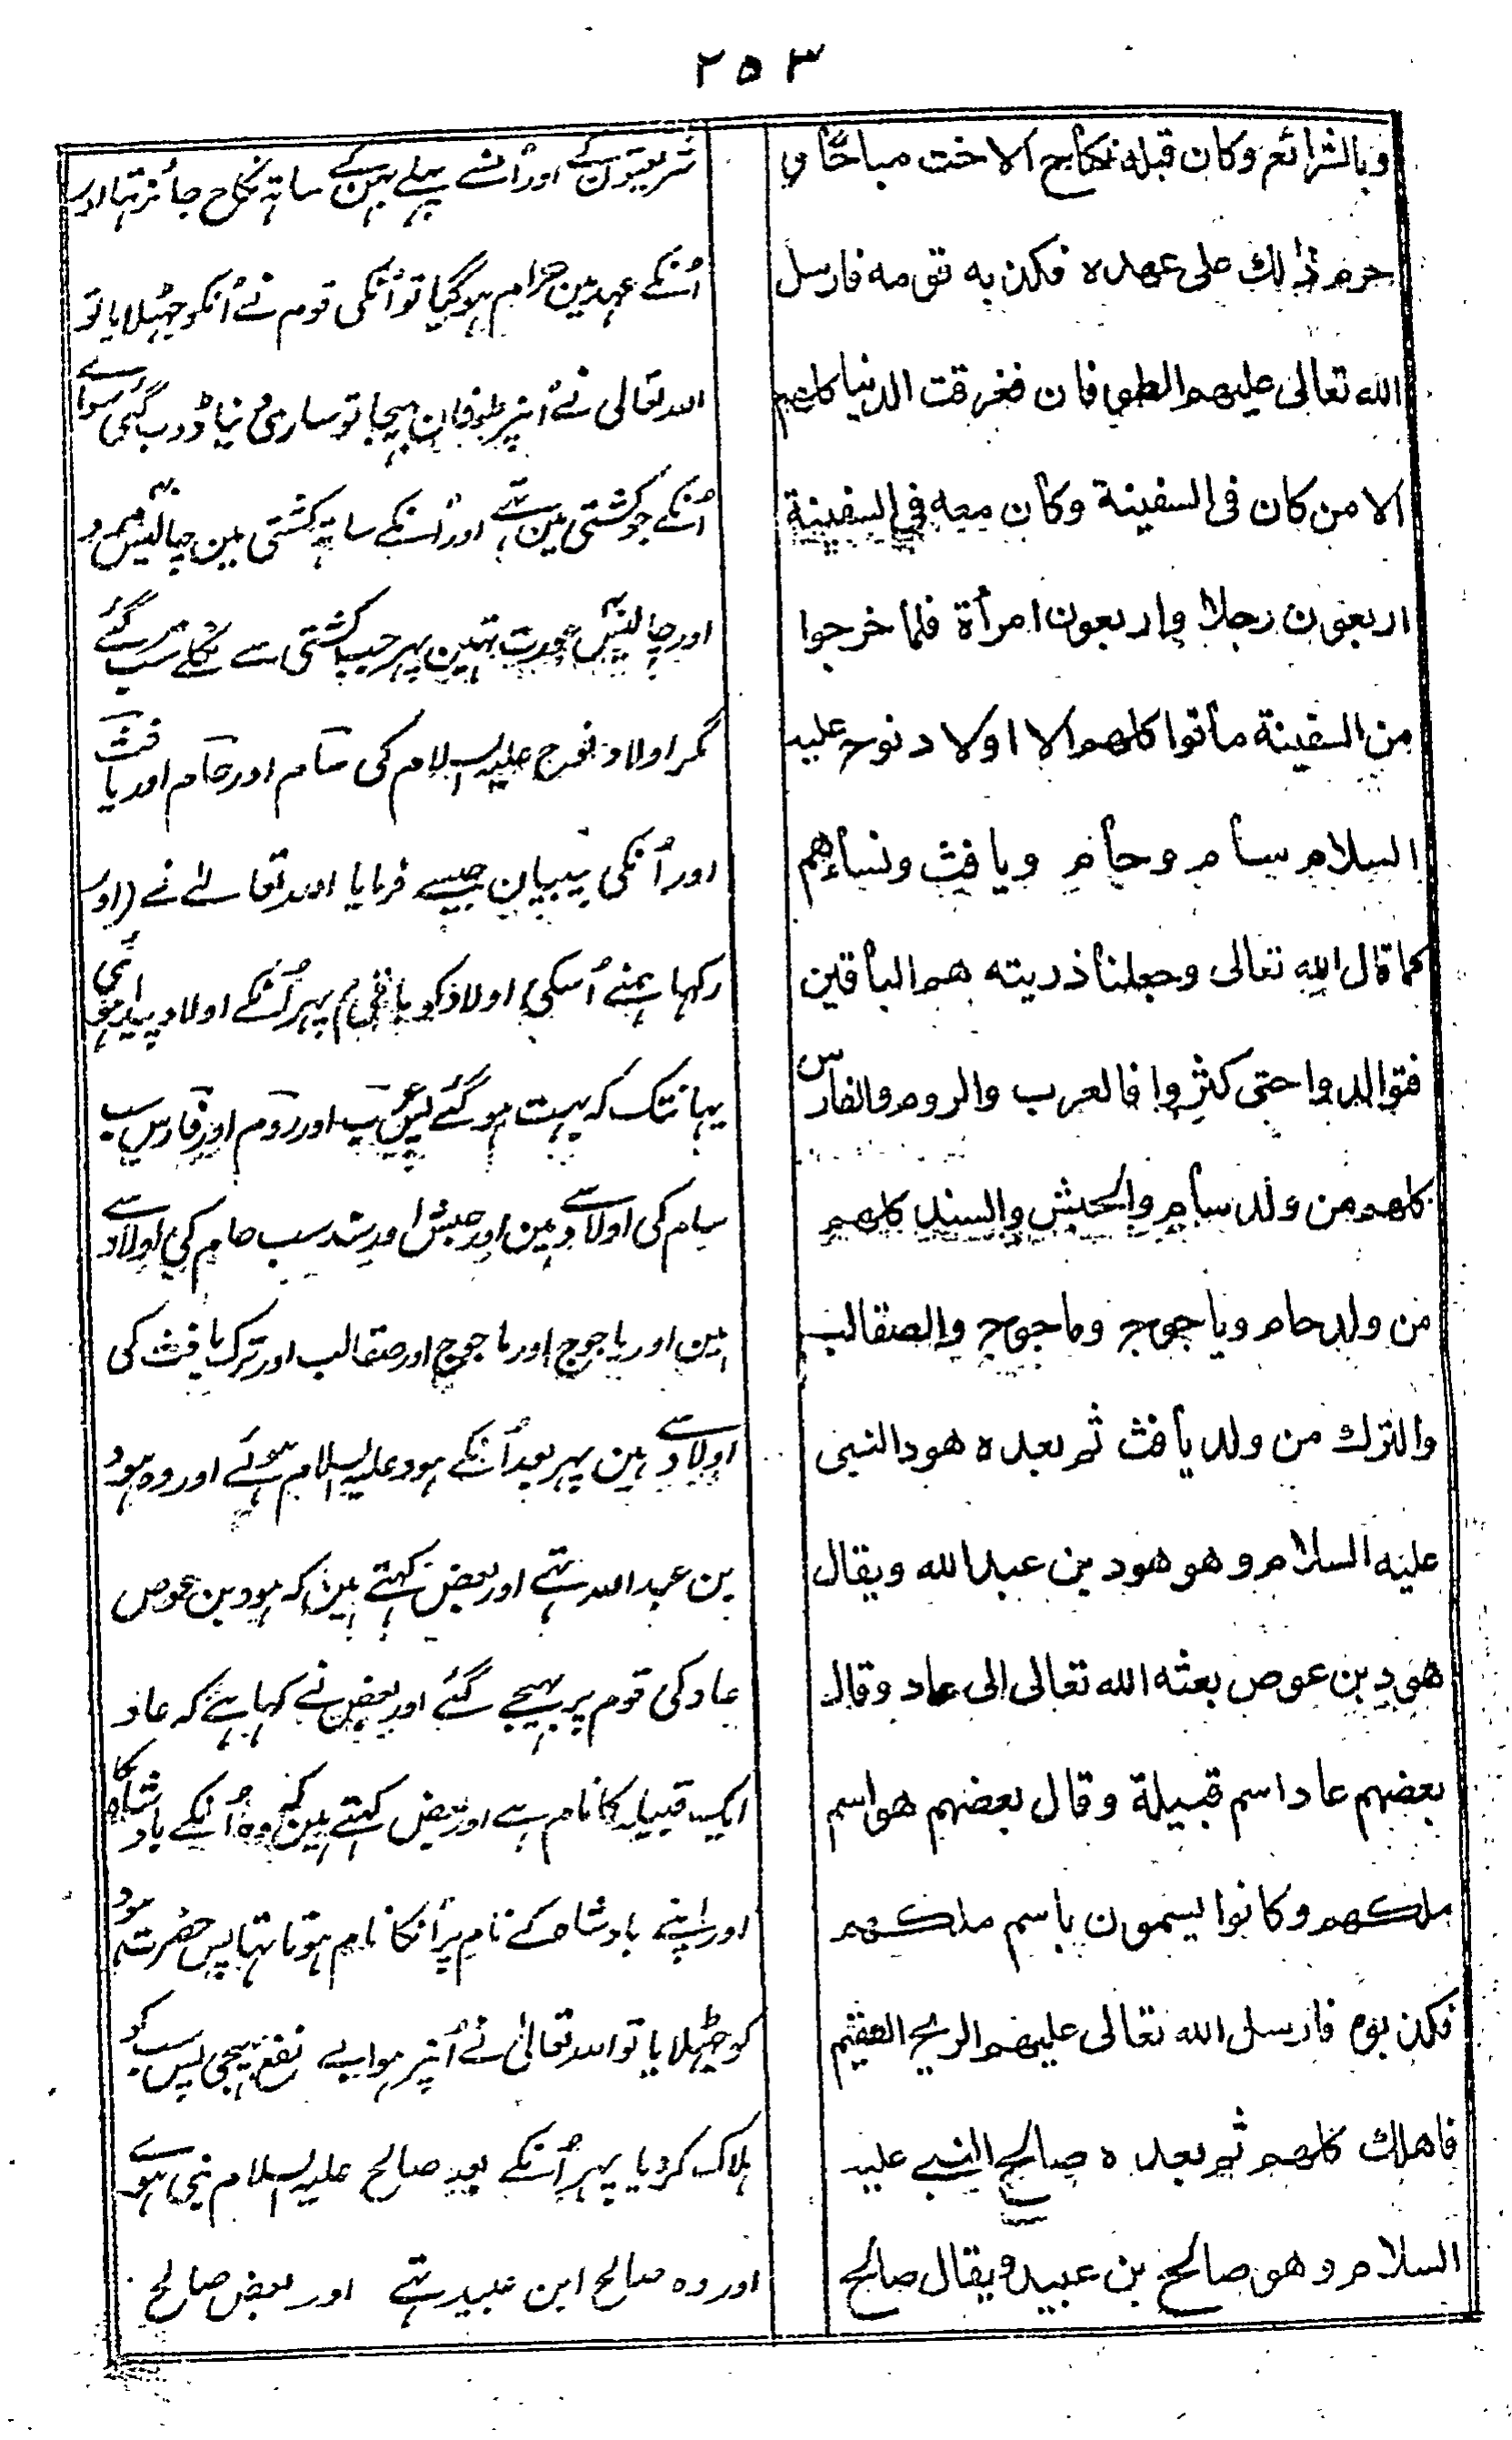 ٢٥٣
وبالشرائع وكان قبله نكاح الاخت مباحًا و
حرم ذلك على عهده فكذبه قومه فارسل
الله تعالى عليهم الطوفان فغرقت الدنيا كلهم
الا من كان فى السفينة وكان معه فى السفينة
اربعون رجلا واربعون امرأة فلما خرجوا
من السفينة ماتوا كلهم الا اولاد نوح عليه
السلام سام وحام ويافث ونساءهم
كما قال الله تعالى وجعلنا ذريته هم الباقين
فتوالدوا حتى كثروا فالعرب والروم والفارس
كلهم من ولد سام والحبش والسند كلهم
من ولد حام وياجوج وماجوج والصقالب
والترك من ولد يافث ثم بعده هود النبى
عليه السلام وهو هود بن عبد الله ويقال
هود بن عوص بعثه الله تعالى الى عاد وقال
بعضهم عاد اسم قبيلة وقال بعضهم هو اسم
ملكهم وكانوا يسمون باسم ملكهم
فكذبوه فارسل الله تعالى عليهم الريح العقيم
فاهلك كلهم ثم بعده صالح النبي عليه
السلام وهو صالح بن عبيد ويقال صالح
شریعتون کے اور اُنسے پہلے بہن کے ساتہ نکاح جائز تہا اور
اُنکے عہد مین حرام ہوگیا تو اُنکی قوم نے اُنکو جہٹلایا تو
اللہ تعالی نے اُنپر طوفان بہیجا تو ساری دنیا ڈوب گئی سوائے
اُنکے جو کشتی مین تہے اور اُنکے ساتہ کشتی مین چالیس مرد
اور چالیس عورت تہین پہر جب کشتی سے نکلے سب مر گئے
مگر اولاد نوح علیہ السلام کی سام اور حام اور یافث
اور اُنکی بیبیان جیسے فرمایا اللہ تعالے نے (اور
رکہا ہمنے اُسکی اولاد کو باقی) پہر اُنکے اولاد پیدا ہوئی
یہانتک کہ بہت ہوگئے پس عرب اور روم اور فارس سب
سام کی اولاد سے ہین اور حبش اور سند سب حام کی اولاد سے
ہین اور یاجوج اور ماجوج اور صقالب اور ترک یافث کی
اولاد سے ہین پہر بعد اُنکے ہود علیہ السلام ہوئے اور وہ ہود
بن عبد اللہ تہے اور بعض کہتے ہین کہ ہود بن عوص
عاد کی قوم پر بہیجے گئے اور بعض نے کہا ہے کہ عاد
ایک قبیلہ کا نام ہے اور بعض کہتے ہین کہ وہ اُنکے بادشاہ کا
اور اپنے بادشاہ کے نام پر اُنکا نام ہوتا تہا پس حضرت ہود
کو جہٹلایا تو اللہ تعالیٰ نے اُنپر ہوا بے نفع بہیجی پس سب کو
ہلاک کردیا پہر اُنکے بعد صالح علیہ السلام نبی ہوے
اور وہ صالح ابن عبید تہے اور بعض صالح